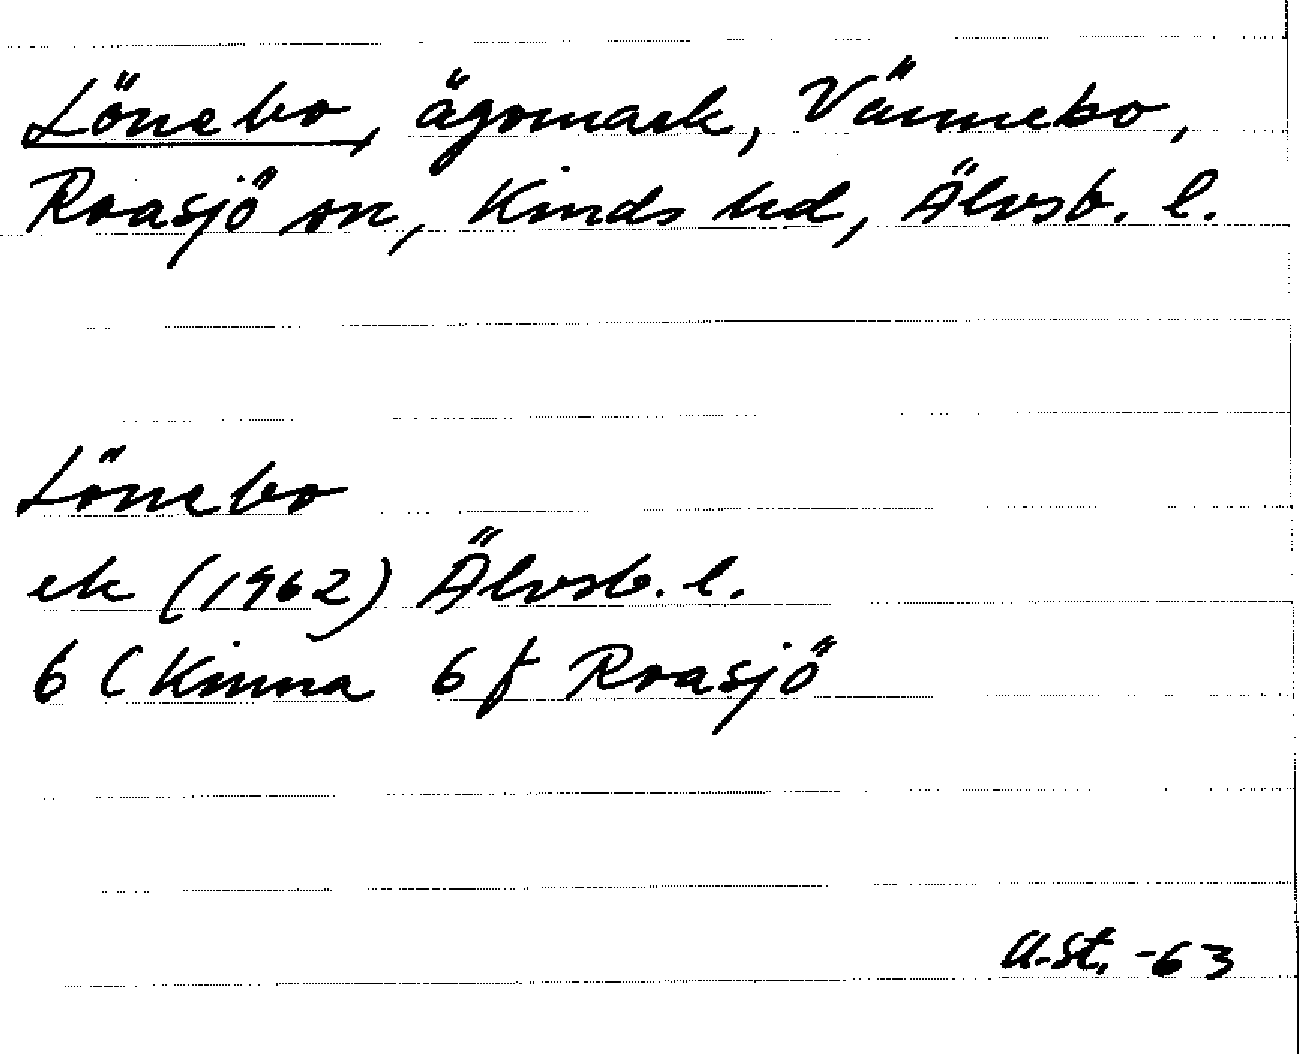 Lönebo, ägomark, Vännebo,
Roasjö sn, Kinds hd, Älvsb. l.
Lönebo
ek (1962) Älvsb. l.
6 C Kinna 6 f Roasjö
U.St. -63